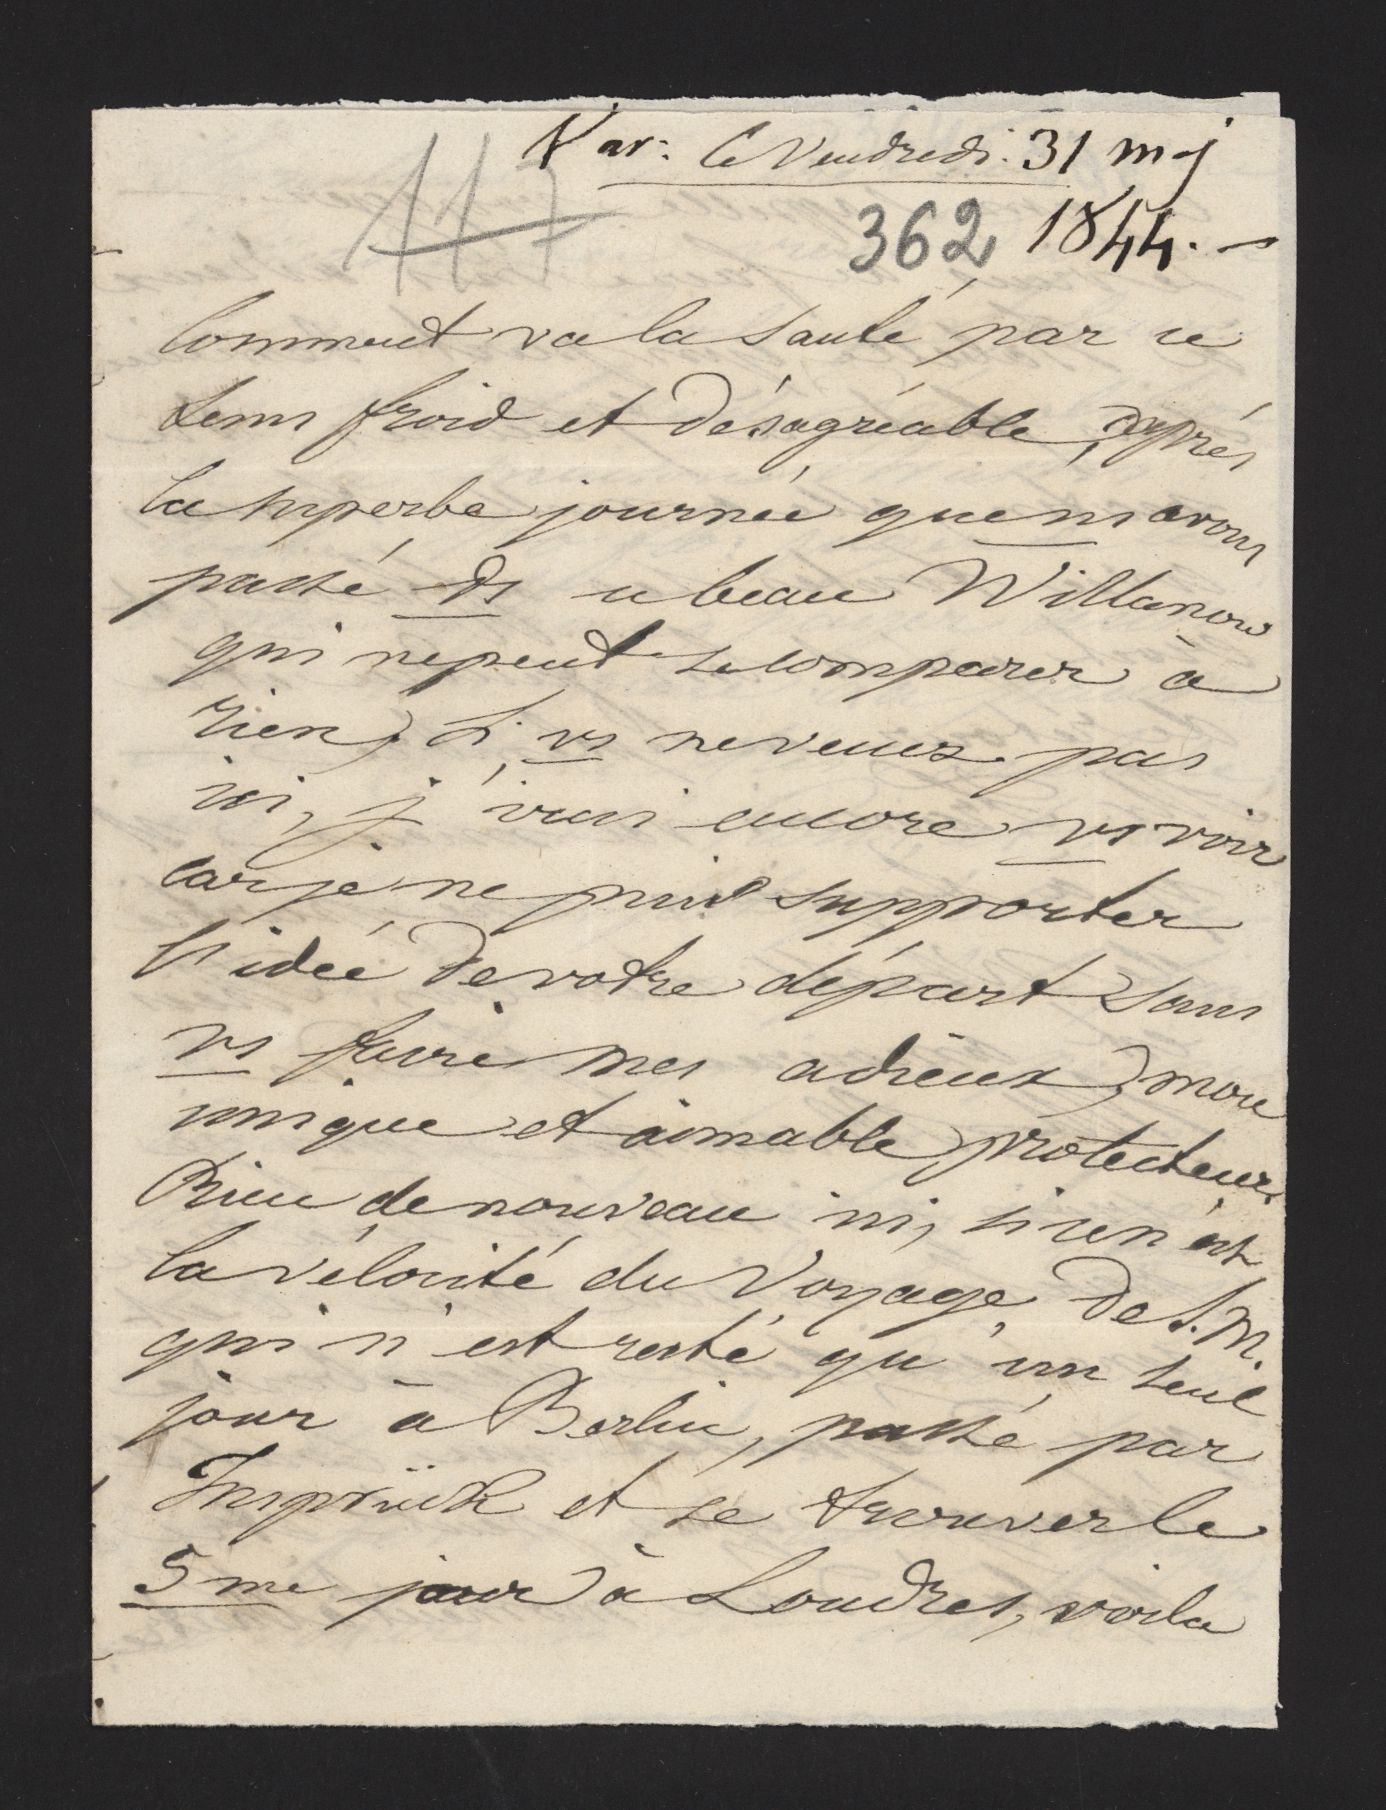 Var: Ce Vendredi. 31 maj
117 362 1844. -
Comment va la santé par ce
tems froid et désagréable, après
la superbe journée que ns avons
passé ds ce beau Willanow
qui ne peut se comparer à
rien, Si vs ne venez pas
ici, j'irai encore vs voir
car je ne puis supporter
l'idée de votre départ sans
vs faire mes adieux, mon
unique et aimable protecteur.
Rien de nouveau ici, si ce n'est
la vélocité du Voyage de S.M.
qui n'est resté qu'un seul
jour à Berlin, passé par
Insprück et se trouver le
5me jour à Londres, voila